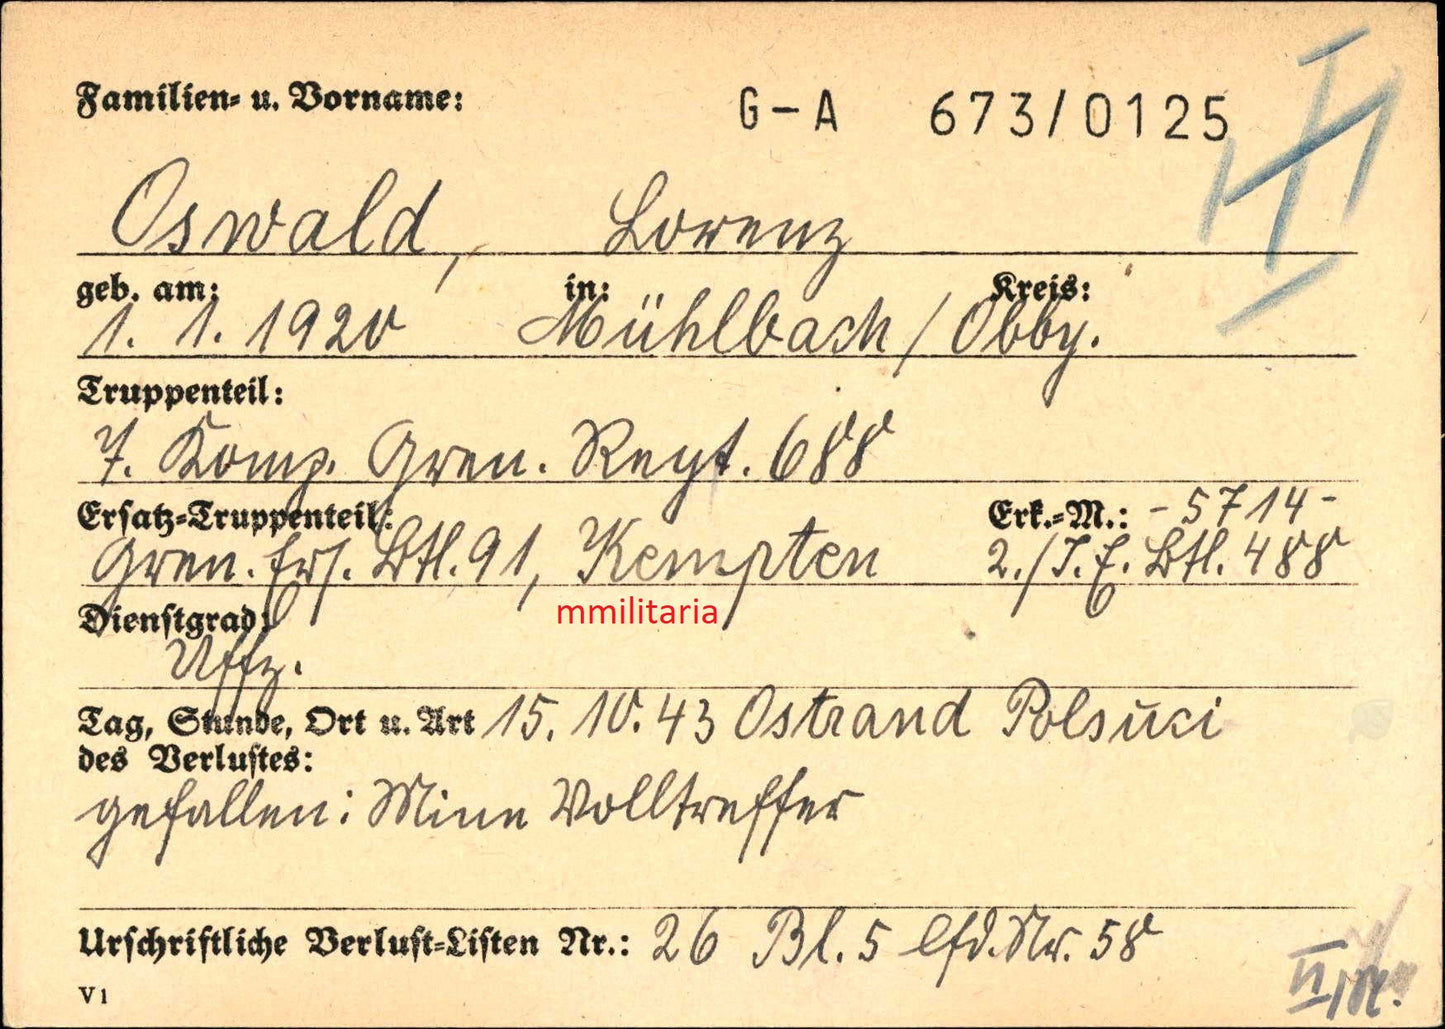 Familien- u. Vorname:
G-A 673/0125
Oswald, Lorenz
geb. am: in: Kreis:
1. 1. 1920 Mühlbach / Obby.
Truppenteil:
7. Komp. Gren. Regt. 688
Ersatz-Truppenteil: Erk.-M.: - 5714 -
Gren. Ers. Btl. 91, Kempten 2./I.E. Btl. 488
mmilitaria
Dienstgrad:
Uffz.
Tag, Stunde, Ort u. Art 15. 10. 43 Ostrand Polsuci
des Verlustes:
gefallen: Mine Volltreffer
Urschriftliche Verlust-Listen Nr.: 26 Bl. 5 lfd. Nr. 58
V1